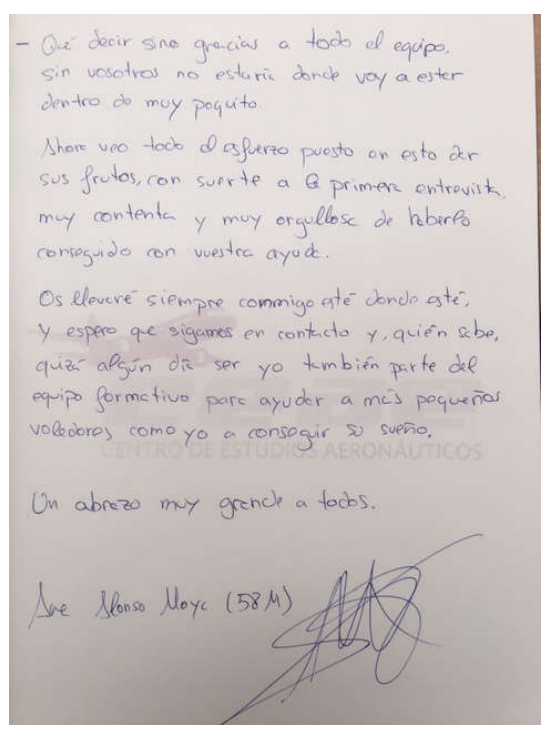 - Qué decir sino gracias a todo el equipo,
sin vosotros no estaría donde voy a estar
dentro de muy poquito.
Ahora veo todo el esfuerzo puesto en esto dar
sus frutos, con suerte a la primera entrevista,
muy contenta y muy orgullosa de haberlo
conseguido con vuestra ayuda.
Os llevaré siempre commigo esté donde esté,
y espero que sigamos en contacto y, quién sabe,
quizá algún día ser yo también parte del
equipo formativo para ayudar a más pequeños
voladores como yo a conseguir su sueño.
CENTRO DE ESTUDIOS AERONÁUTICOS
Un abrazo muy grande a todos.
Ane Alonso Moya (58M)